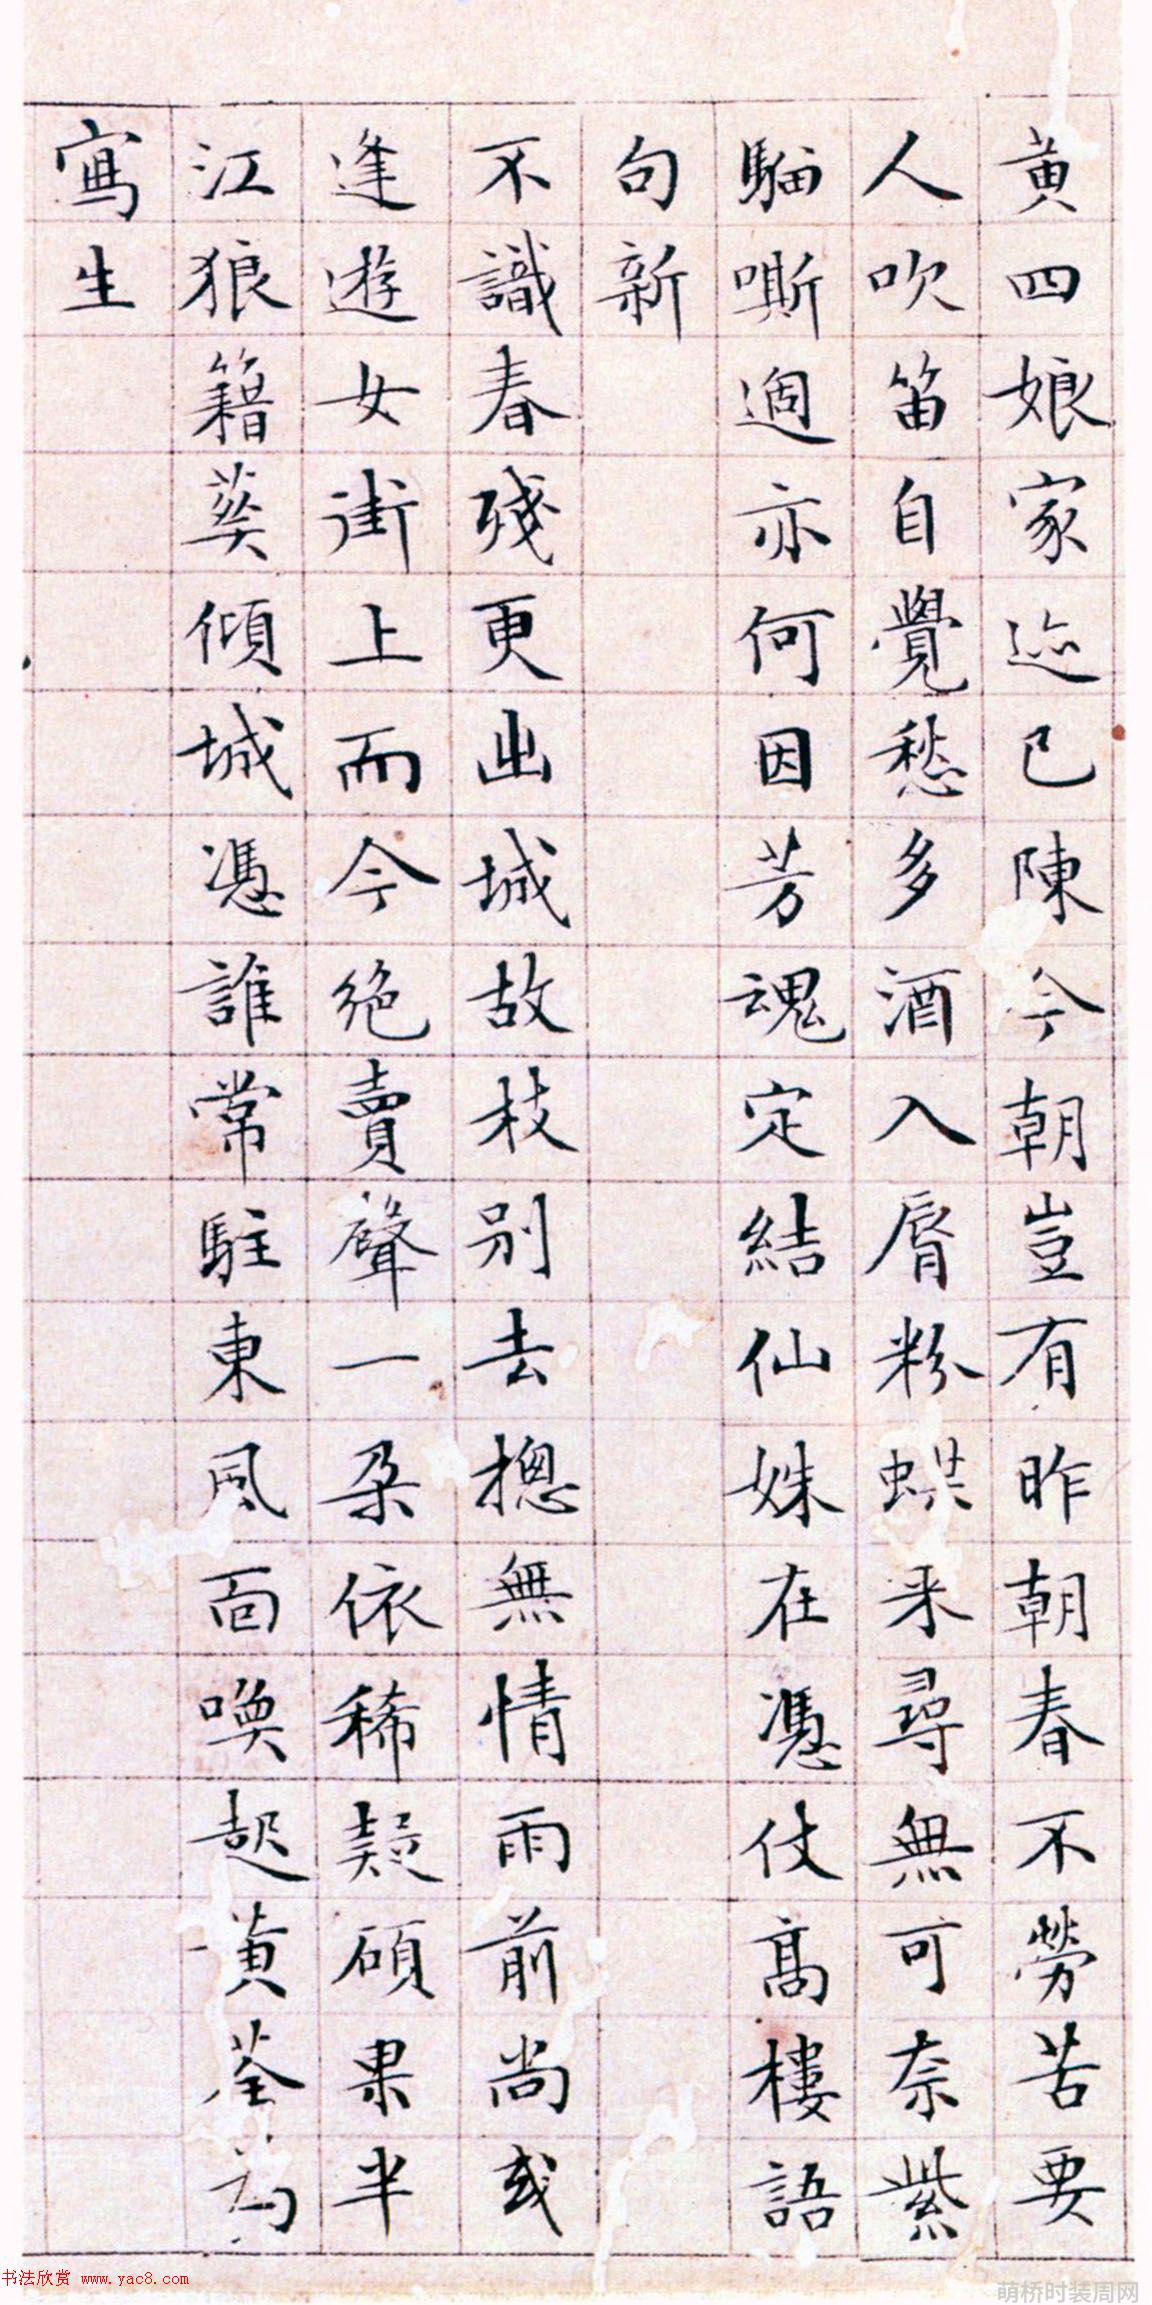 黄四娘家迹已陳今朝豈有昨朝春不勞苦要
人吹笛自覺愁多酒入脣粉蜨来尋無可奈紫
騮嘶過亦何因芳魂定結仙姝在憑仗髙樓語
句新
不識春殘更出城故枝别去摠無情雨前尚或
逢遊女街上而今絶賣聲一朶依稀疑碩果半
江狼籍葬傾城憑誰常駐東風面喚起黄荃為
寫生
书法欣赏 www.yac8.com
萌桥时装周网